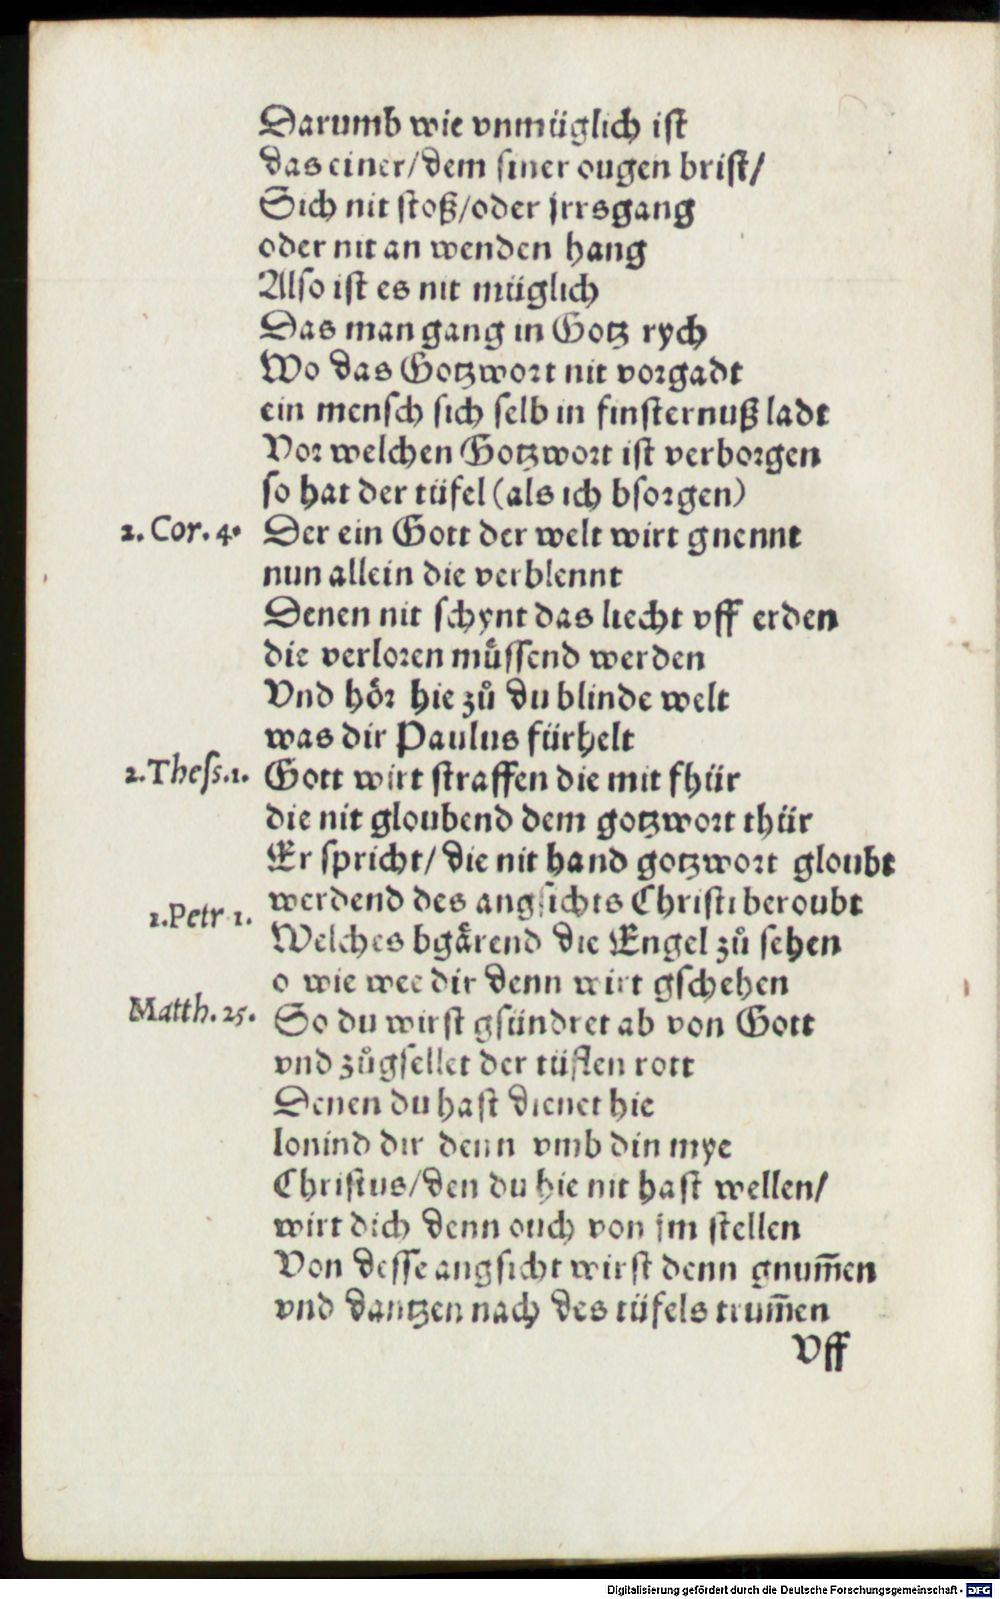 Darumb wie vnmüglich ist
das einer/dem siner ougen brist/
Sich nit stoß/oder jrrsgang
oder nit an wenden hang
Also ist es nit müglich
Das man gang in Gotz rych
Wo das Gotzwort nit vorgadt
ein mensch sich selb in finsternuß ladt
Vor welchen Gotzwort ist verborgen
so hat der tüfel (als ich bsorgen)
2. Cor. 4. Der ein Gott der welt wirt gnennt
nun allein die verblennt
Denen nit schynt das liecht vff erden
die verloren müssend werden
Vnd hör hie zů du blinde welt
was dir Paulus fürhelt
2. Thess. 1. Gott wirt straffen die mit fhür
die nit gloubend dem gotzwort thür
Er spricht/die nit hand gotzwort gloubt
werdend des angsichts Christi beroubt
1. Petr 1. Welches bgårend die Engel zů sehen
o wie wee dir denn wirt gschehen
Matth. 25. So du wirst gsündret ab von Gott
vnd zůgsellet der tüflen rott
Denen du hast dienet hie
lonind dir denn vmb din mye
Christus/den du hie nit hast wellen/
wirt dich denn ouch von jm stellen
Von desse angsicht wirst denn gnum̄en
vnd dantzen nach des tüfels trum̄en
Vff
Digitalisierung gefördert durch die Deutsche Forschungsgemeinschaft - DFG